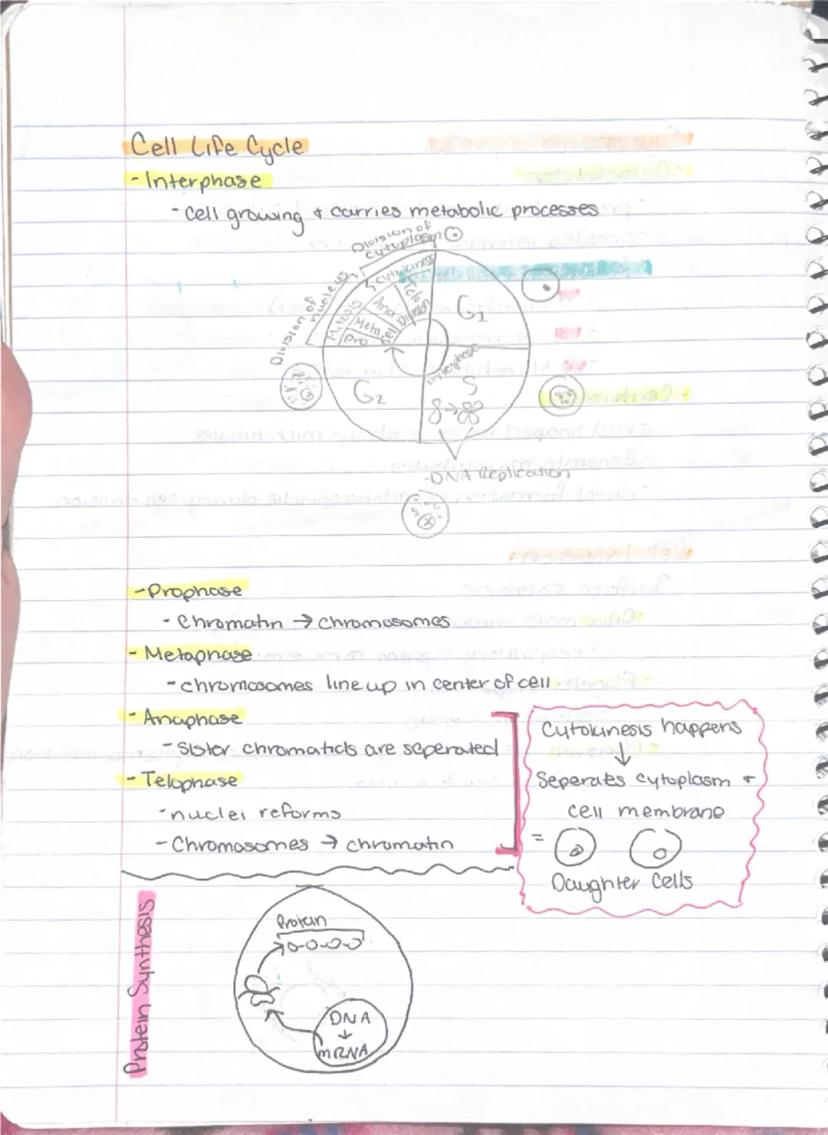 Cell Life Cycle
- Interphase
- Cell growing + carries metabolic processes
Division of cytoplasm
Cytokinesis
Division of nucleus
Mitosis
Pro
Meta
Ana
Telo
Cell Division
G1
Interphase
S
G2
- DNA Replication
- Prophase
- Chromatin → chromosomes
- Metaphase
- chromosomes line up in center of cell
- Anaphase
- Sister chromatids are seperated
- Telophase
- nuclei reforms
- Chromosomes → chromatin
Cytokinesis happens
↓
Seperates cytoplasm +
cell membrane
=
Daughter Cells
Protein Synthesis
Protein
DNA
↓
mRNA